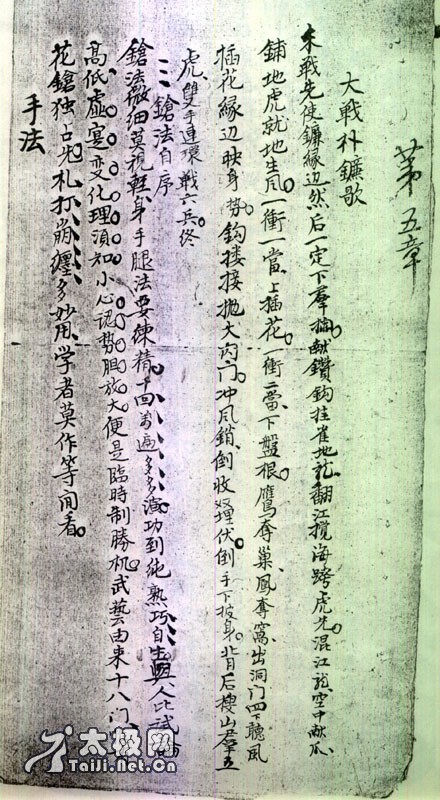 第五章
大戦朴鐮歌
未戦先使鐮緣边然后一定下羣揄献鑽钩挂雀地龙翻江搅海跨虎先混江龙空中献爪
铺地虎就地生风一衝一當上插花一衝二當下盤根鷹奪巢鳳奪窝出洞门四下聽風
插花緣边映身势鈎搂接抛大内门冲风鎖倒收双埋伏倒手下披身背后搜山羣五
虎雙手連環戰六兵终
三、鎗法自序
鎗法微细莫視輕身手腿法要練精千回萬遍多多演功到纯熟巧自生與人比試
高低虚实变化理須知小心認势胆放大便是臨時制勝机武藝由来十八门
花鎗独占先札打崩纏多妙用学者莫作等闲看
手法
太极网
Taiji.Net.Cn